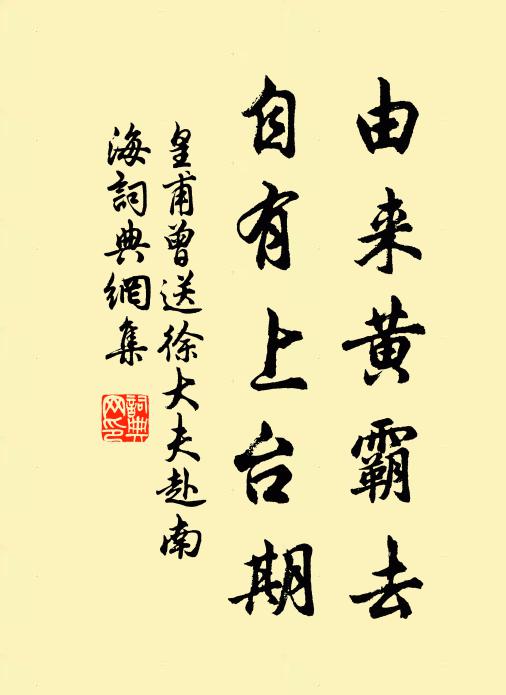 由来黄霸去
自有上台期
皇甫曾送徐大夫赴南
海詞典網集
詞典
网印